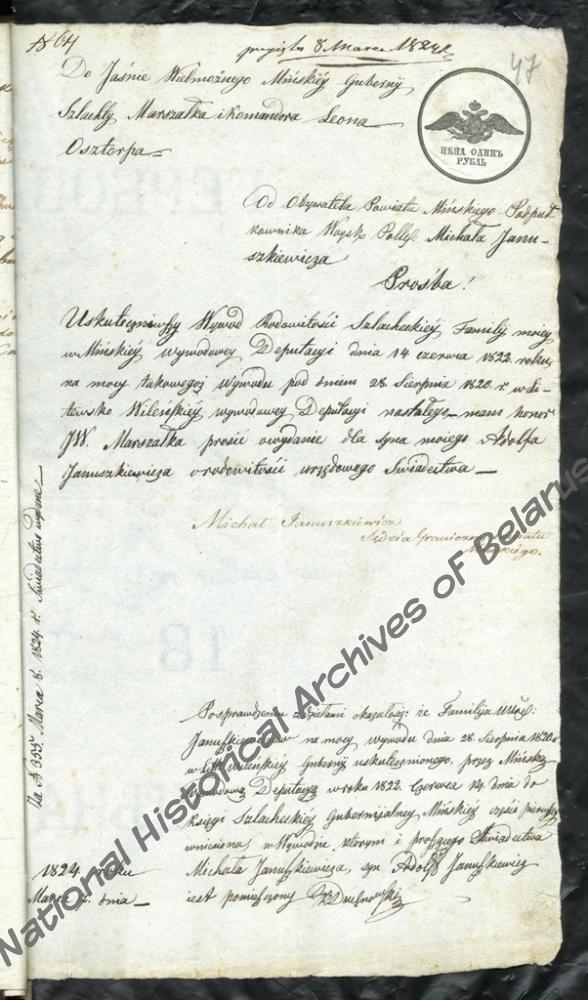 № 64
8 Marca 1824 r.
47
Do Jaśnie Wielmożnego Mińskiéy Guberny
Szlachty Marszałka i Komandora Leona
Osztorpa
ЦѢНА ОДИНЪ
РУБЛЬ
Od Obywatela Powiatu Mińskiego Podpuł
kownika Woysk Polls: Michała Janu-
szkiewicza
Prośba!
Uskuteczniwszy Wywod Rodowitości Szlacheckiéy Familij moiey
w Mińskiéy Wywodowey Deputacyi dnia 14 czerwca 1822. roku,
na mocy takowegoż Wywodu pod dniem 28 Sierpnia 1820. r. w Li-
tewsko Wileńskiéy wywodowey Deputacyi nastałego mam honor
JW. Marszałka prosić o wydanie dla syna moiego Adolfa
Januszkiewicza o rodowitości urzędowego Swiadectwa
Michał Januszkiewicz
Sędzia Graniczny Powiatu
Mińskiego.
Za № 355. Marca 8. 1824 r. Swiadectwo wydane
Po sprawdzeniu z działami okazało się: że Familija
Januszkiewiczow na mocy wywodu dnia 28 Sierpnia 1820 r.
w Lit: Wileńskiéy Gubernij uskutecznionego, przez Mińską
wywodową Deputacyą w roku 1822. Czerwca 14. dnia do
Księgi Szlacheckiéy Gubernijalney Mińskiéy części pierwszey
wniesiona, w Wywodzie, ktorym i proszącego Swiadectwa
Michała Januszkiewicza, syn Adolf Januszkiewicz
iest pomieszczony
1824. roku
Marca 7. dnia
National Historical Archives of Belarus